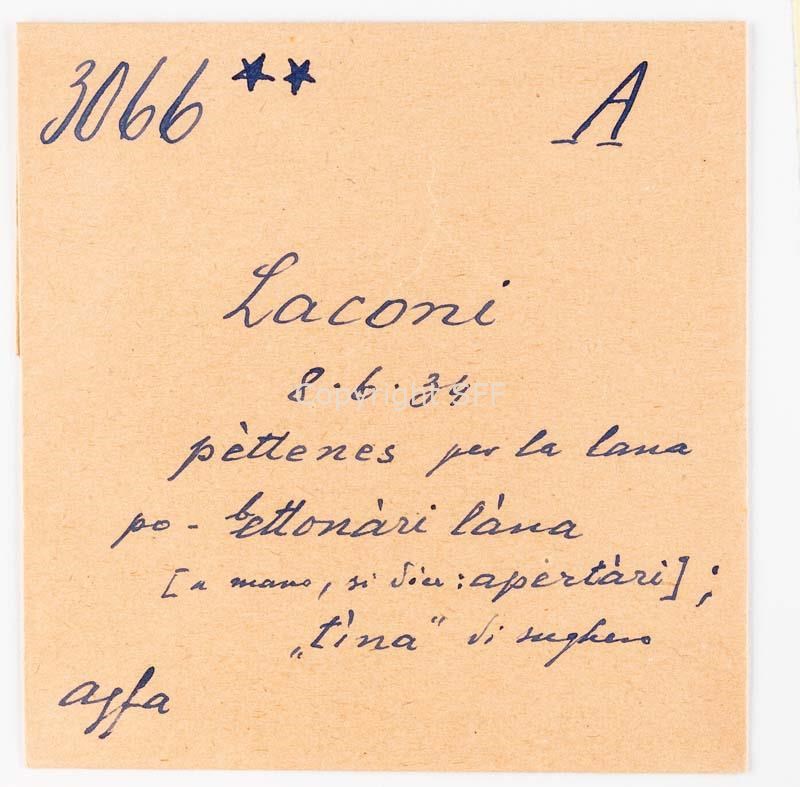 3066 ★★ A
Laconi
8.6.34
pèttenes per la lana
po - bettonàri làna
[a mano, si dice: apertàri];
„tìna" di sughero
agfa
Copyright SFF